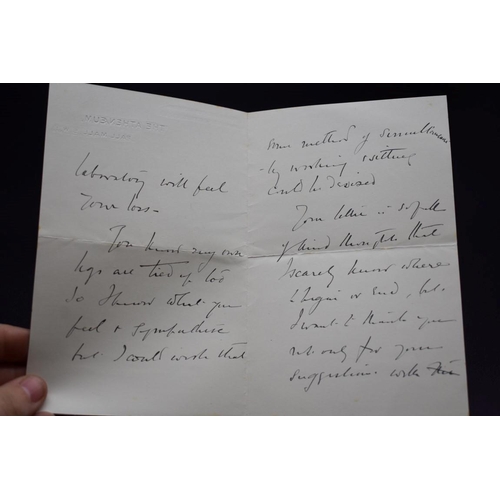 laboratory will feel
Your loss -
You know my own
legs are tied up too
So I know what you
feel & sympathise
but I could wish that
Some method of simultaneous
-ly working & sitting
could be devised
Your letter is so full
of kind thoughts that
I scarcely know where
to begin or end, but
I want to thank you
not only for your
suggestions with